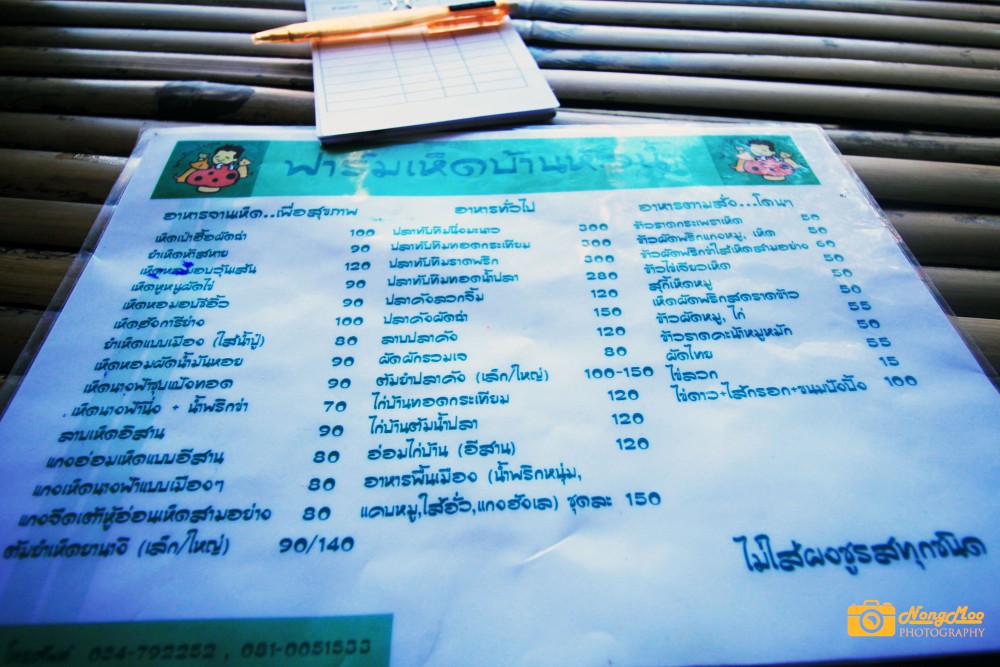 ฟาร์มเห็ดบ้าน
อาหารจานเห็ด..เพื่อสุขภาพ
เห็ดเป๋าฮื้อผัดฉ่า 100
ยำเห็ดห้าสหาย 90
อบวุ้นเส้น 120
เห็ดหูหนูผัดไข่ 90
เห็ดหอมอบซีอิ๊ว 90
เห็ดฮังการีย่าง 100
ยำเห็ดแบบเมือง (ใส่น้ำปู๋) 80
เห็ดหอมผัดน้ำมันหอย 90
เห็ดนางฟ้าชุบแป้งทอด 90
เห็ดนางฟ้านึ่ง + น้ำพริกข่า 70
ลาบเห็ดอีสาน 90
แกงอ่อมเห็ดแบบอีสาน 80
แกงเห็ดนางฟ้าแบบเมืองๆ 80
แกงจืดเต้าหู้อ่อนเห็ดสามอย่าง 80
ต้มยำเห็ดยานางิ (เล็ก/ใหญ่) 90/140
อาหารทั่วไป
ปลาทับทิมนึ่งมะนาว 300
ปลาทับทิมทอดกระเทียม 300
ปลาทับทิมราดพริก 300
ปลาทับทิมทอดน้ำปลา 280
ปลาคังลวกจิ้ม 120
ปลาคังผัดฉ่า 150
ลาบปลาคัง 120
ผัดผักรวมเจ 80
ต้มยำปลาคัง (เล็ก/ใหญ่) 100-150
ไก่บ้านทอดกระเทียม 120
ไก่บ้านต้มน้ำปลา 120
อ่อมไก่บ้าน (อีสาน) 120
อาหารพื้นเมือง (น้ำพริกหนุ่ม,
แคบหมู,ไส้อั่ว,แกงฮังเล) ชุดละ 150
อาหารตามสั่ง...โดนๆ
ข้าวราดกระเพราเห็ด 50
ข้าวผัดพริกแกงหมู, เห็ด 50
ข้าวผัดพริกขำไส่เห็ดสามอย่าง 60
ข้าวไข่เจียวเห็ด 50
สุกี้เห็ดหมู 50
เห็ดผัดพริกสดราดข้าว 50
ข้าวผัดหมู, ไก่ 55
ข้าวราดคะน้าหมูหมัก 50
ผัดไทย 55
ไข่ลวก 15
ไข่ดาว+ไส้กรอก+ขนมปังปิ้ง 100
ไม่ใส่ผงชูรสทุกชนิด
โทรศัพท์ 054-792252 , 081-0051533
NongMoo
PHOTOGRAPHY